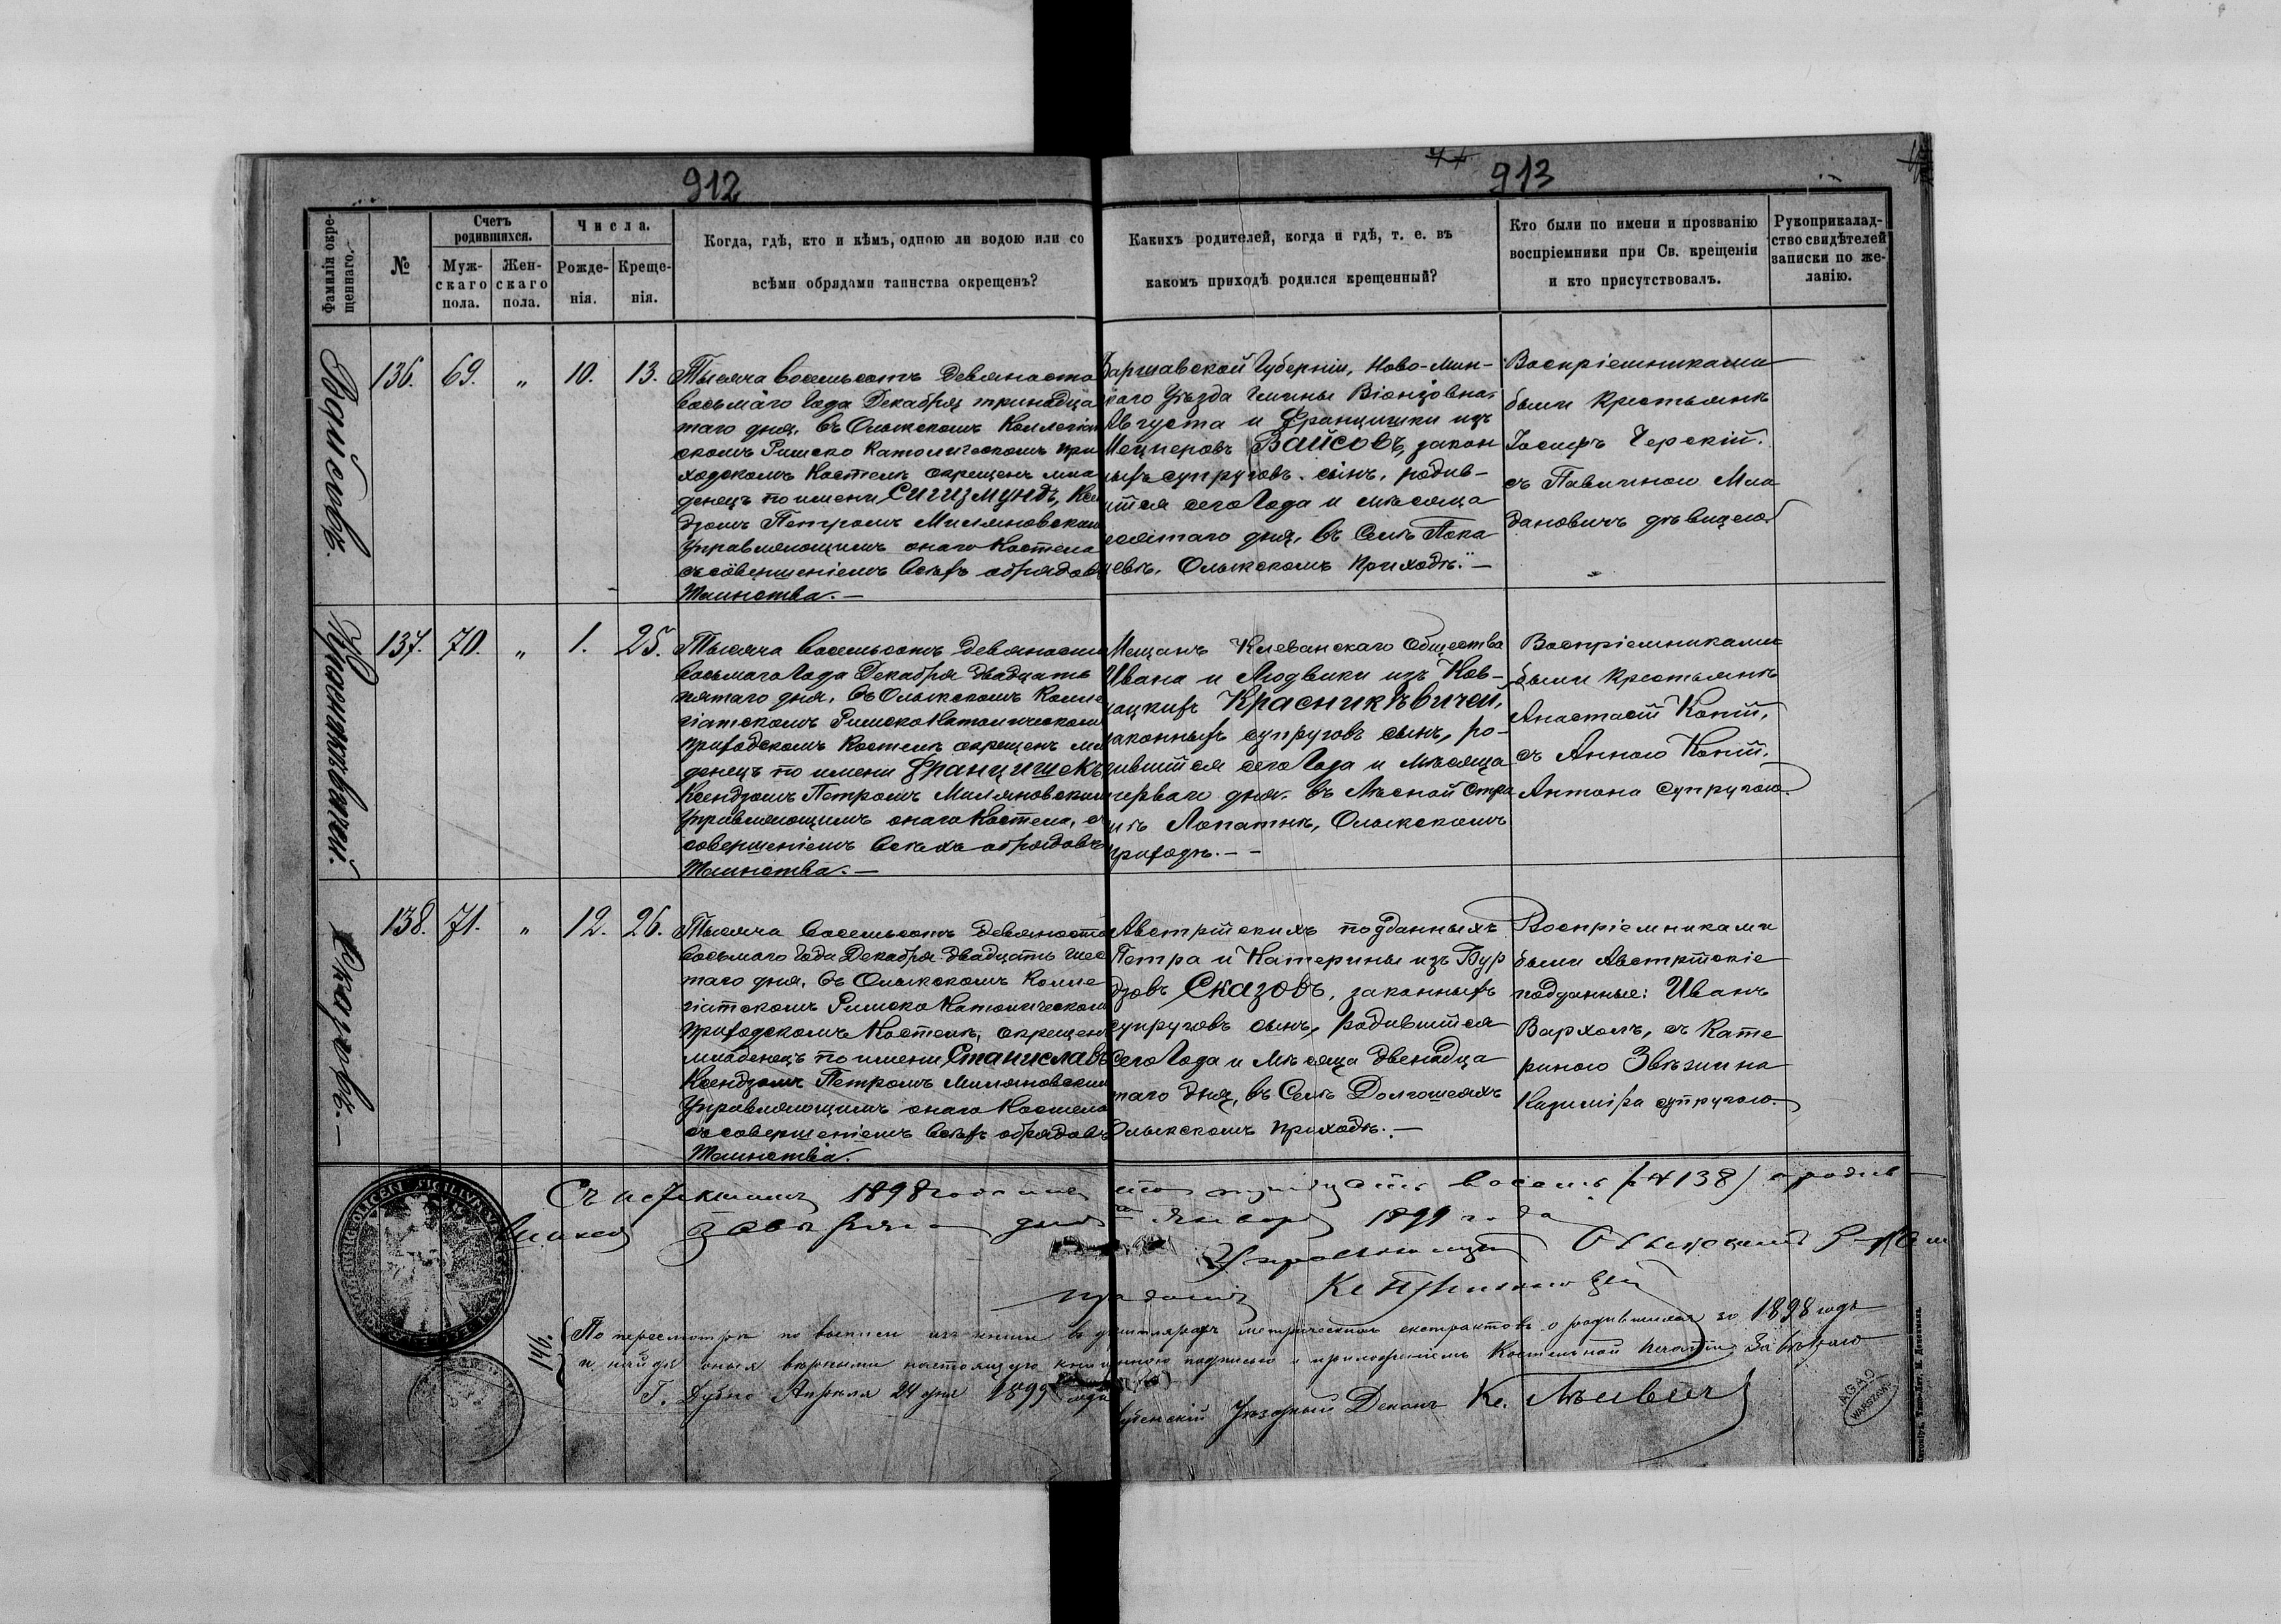 912
913
Фамилія окре-
щеннаго.
№
Счетъ
родившихся.
Муж-
скаго
пола.
Жен-
скаго
пола.
Числа.
Рожде-
нія.
Креще-
нія.
Когда, гдѣ, кто и кѣмъ, одною ли водою или со
всѣми обрядами таинства окрещенъ?
Какихъ родителей, когда и гдѣ, т. е. въ
какомъ приходѣ родился крещенный?
Кто были по имени и прозванію
воспріемники при Св. крещеніи
и кто присутствовалъ.
Рукоприкалад-
ство свидѣтелей
записки по же-
ланію.
Вайсовъ.
136.
69.
"
10.
13.
Тысяча восемьсотъ девяноста
восьмаго Года Декабря тринадца
таго дня, въ Олыкскомъ Коллегіат
скомъ Римско Католическомъ при
ходскомъ Костелѣ окрещенъ мла
денецъ по имени Сигизмундъ, Ксен
дзомъ Петромъ Миляновскимъ
Управляющимъ онаго Костела
съ совершеніемъ всѣхъ обрядовъ
Таинства. —
Варшавской Губерніи, Ново-Мин-
скаго Уѣзда Гмины Віонзовна,
Августа и Францишки изъ
Мецнеровъ Вайсовъ, закон
ныхъ супруговъ сынъ, родив-
шійся сего Года и мѣсяца
десятаго дня, въ Селѣ Пока
щевѣ, Олыкскомъ Приходѣ. —
Воспріемниками
были Крестьянѣ
Іосифъ Черскій.
съ Павлиною Мла
дановичъ дѣвицею
Красникѣвичей.
137.
70.
"
1.
25.
Тысяча восемьсотъ девяноста
восьмаго Года Декабря двадцать
пятаго дня, въ Олыкскомъ Колле
гіатскомъ Римско Католическомъ
приходскомъ Костелѣ окрещенъ мла
денецъ по имени Францишекъ
Ксендзомъ Петромъ Миляновскимъ
Управляющимъ онаго Костела, съ
совершеніемъ всѣхъ обрядовъ
Таинства. —
Мещанъ Клеванскаго Общества
Ивана и Людвики изъ Нов-
лацкихъ Красникѣвичей,
законныхъ супруговъ сынъ, ро-
дившійся сего Года и мѣсяца
перваго дня, въ Лѣсной Стра
жѣ Лопатнѣ, Олыкскомъ
приходѣ. — —
Воспріемниками
были Крестьянѣ
Анастасій Копій,
съ Анною Копій,
Антона супругою.
Сказовъ. —
138.
71.
"
12.
26.
Тысяча восемьсотъ девяноста
восьмаго Года Декабря двадцать шес
таго дня, въ Олыкскомъ Колле
гіатскомъ Римско Католическомъ
приходскомъ Костелѣ, окрещенъ
младенецъ по имени Станиславъ
Ксендзомъ Петромъ Миляновскимъ
Управляющимъ онаго Костела
съ совершеніемъ всѣхъ обрядовъ
Таинства.
Австрійскихъ подданныхъ
Петра и Катерины изъ Бур
дзовъ Сказовъ, законныхъ
супруговъ сынъ, родившійся
сего Года и Мѣсяца двенадца
таго дня, въ Селѣ Долгошеяхъ
Олыкскомъ приходѣ. —
Воспріемниками
были Австрійскіе
подданные: Иванъ
Вархолъ, съ Кате
риною
Казиміра супругою.
1898 года сто тридцать восемь (№ 138) о родив
шихся дня Января 1899 года
Управляющій Олыкскимъ
146.
По пересмотрѣ метрическихъ екстрактовъ о родившихся за 1898 годъ
и найдя оныя вѣрными настоящую книгу подписью и приложеніемъ Костельной печати
Г. Дубно Апрѣля 24 дня 1899 года
Дубенскій Уѣздный Деканъ Кс.
A.G.A.D.
WARSZAWA